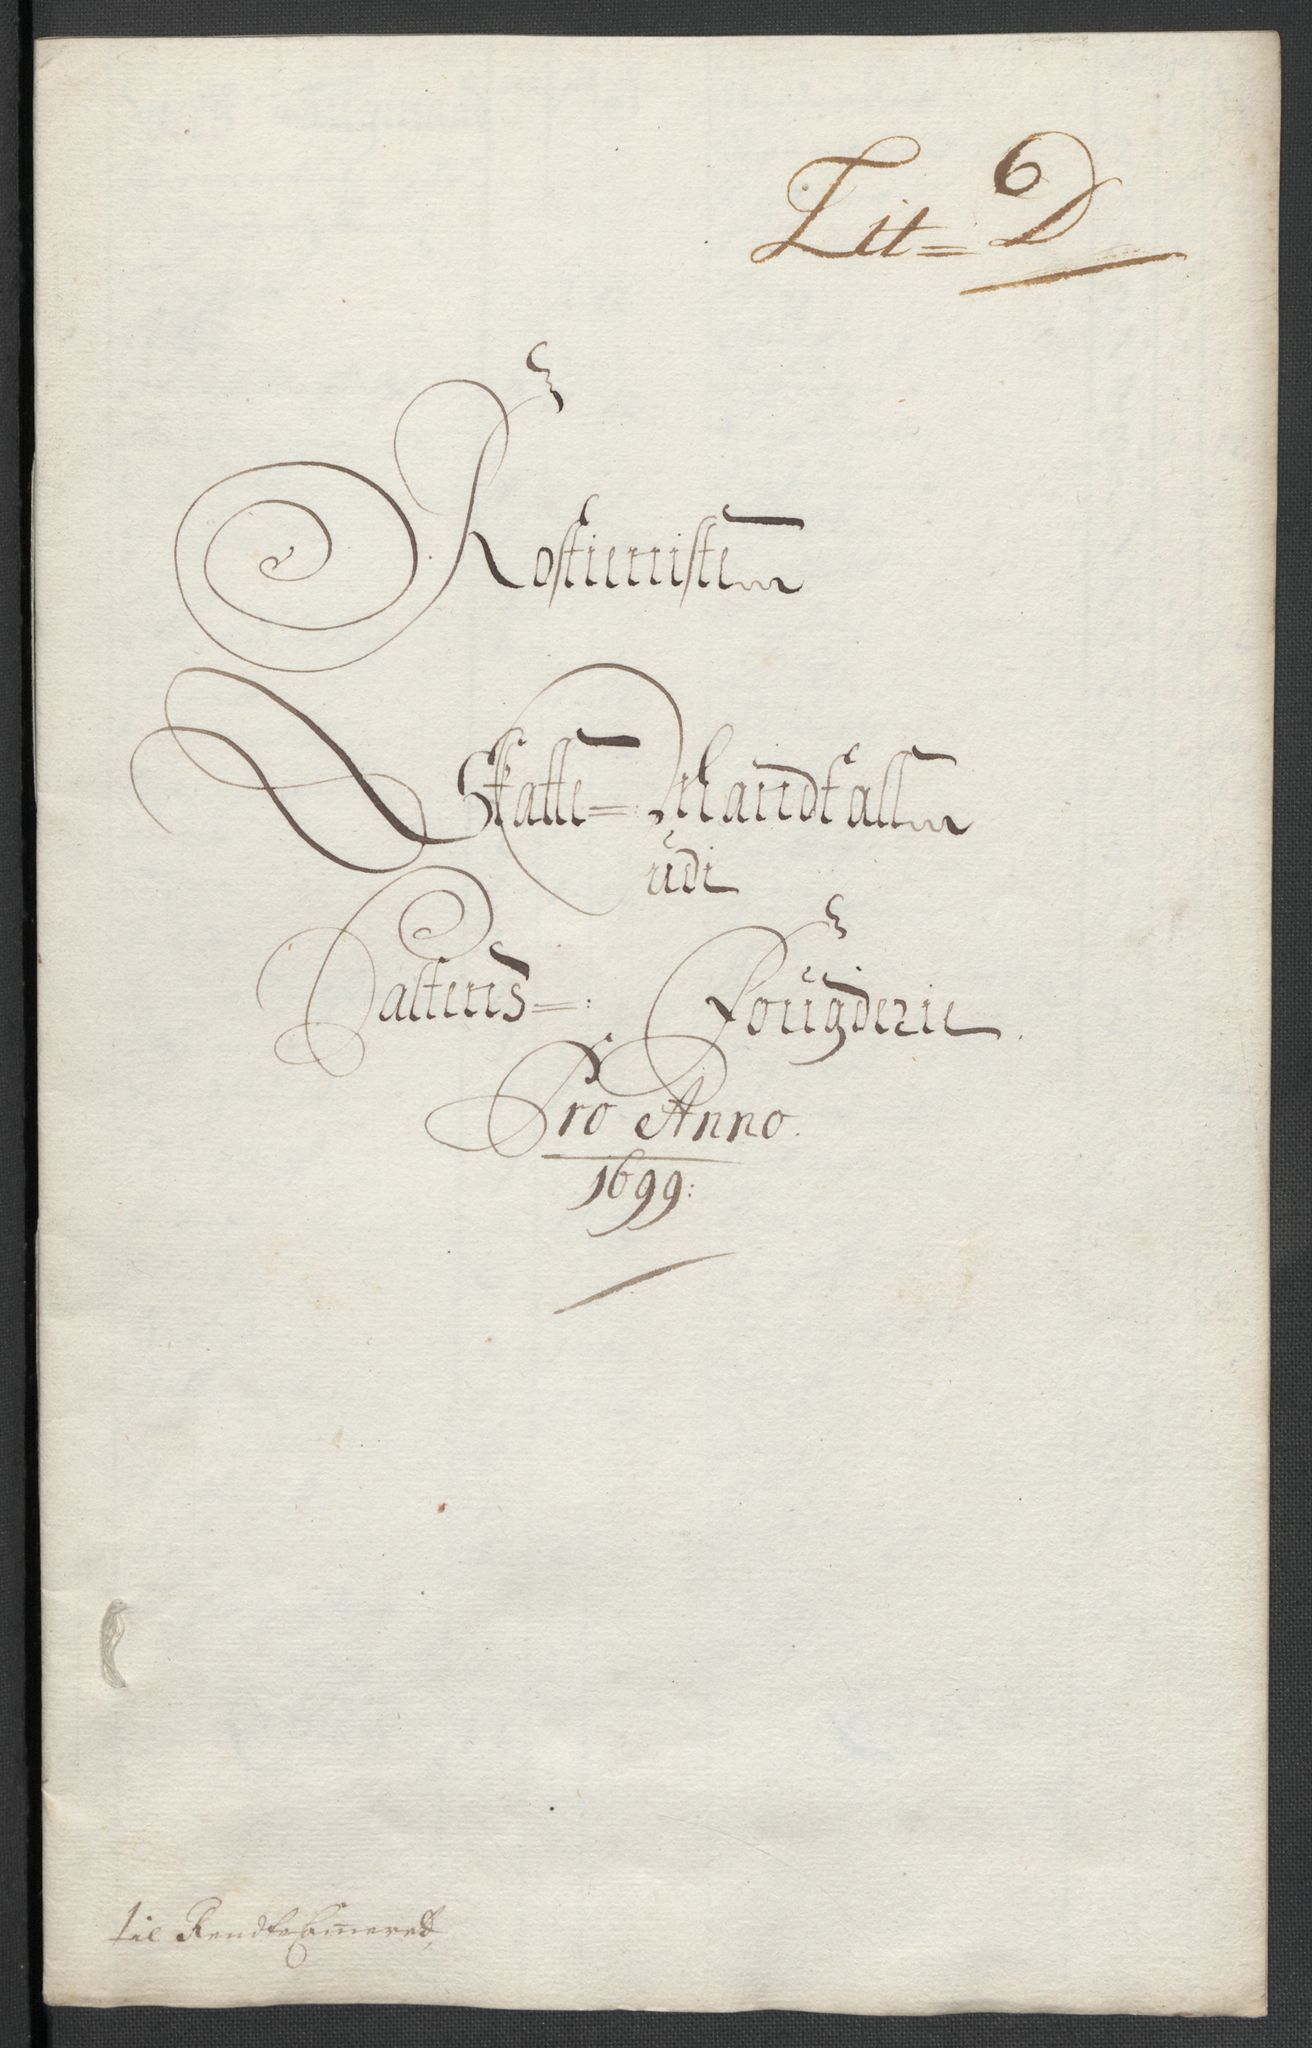 Lit= D
Rostienisten
Skatte= Mandtall
udi
Saltens= Fougderie
Pro Anno
1699:
til Rendte Cammeret